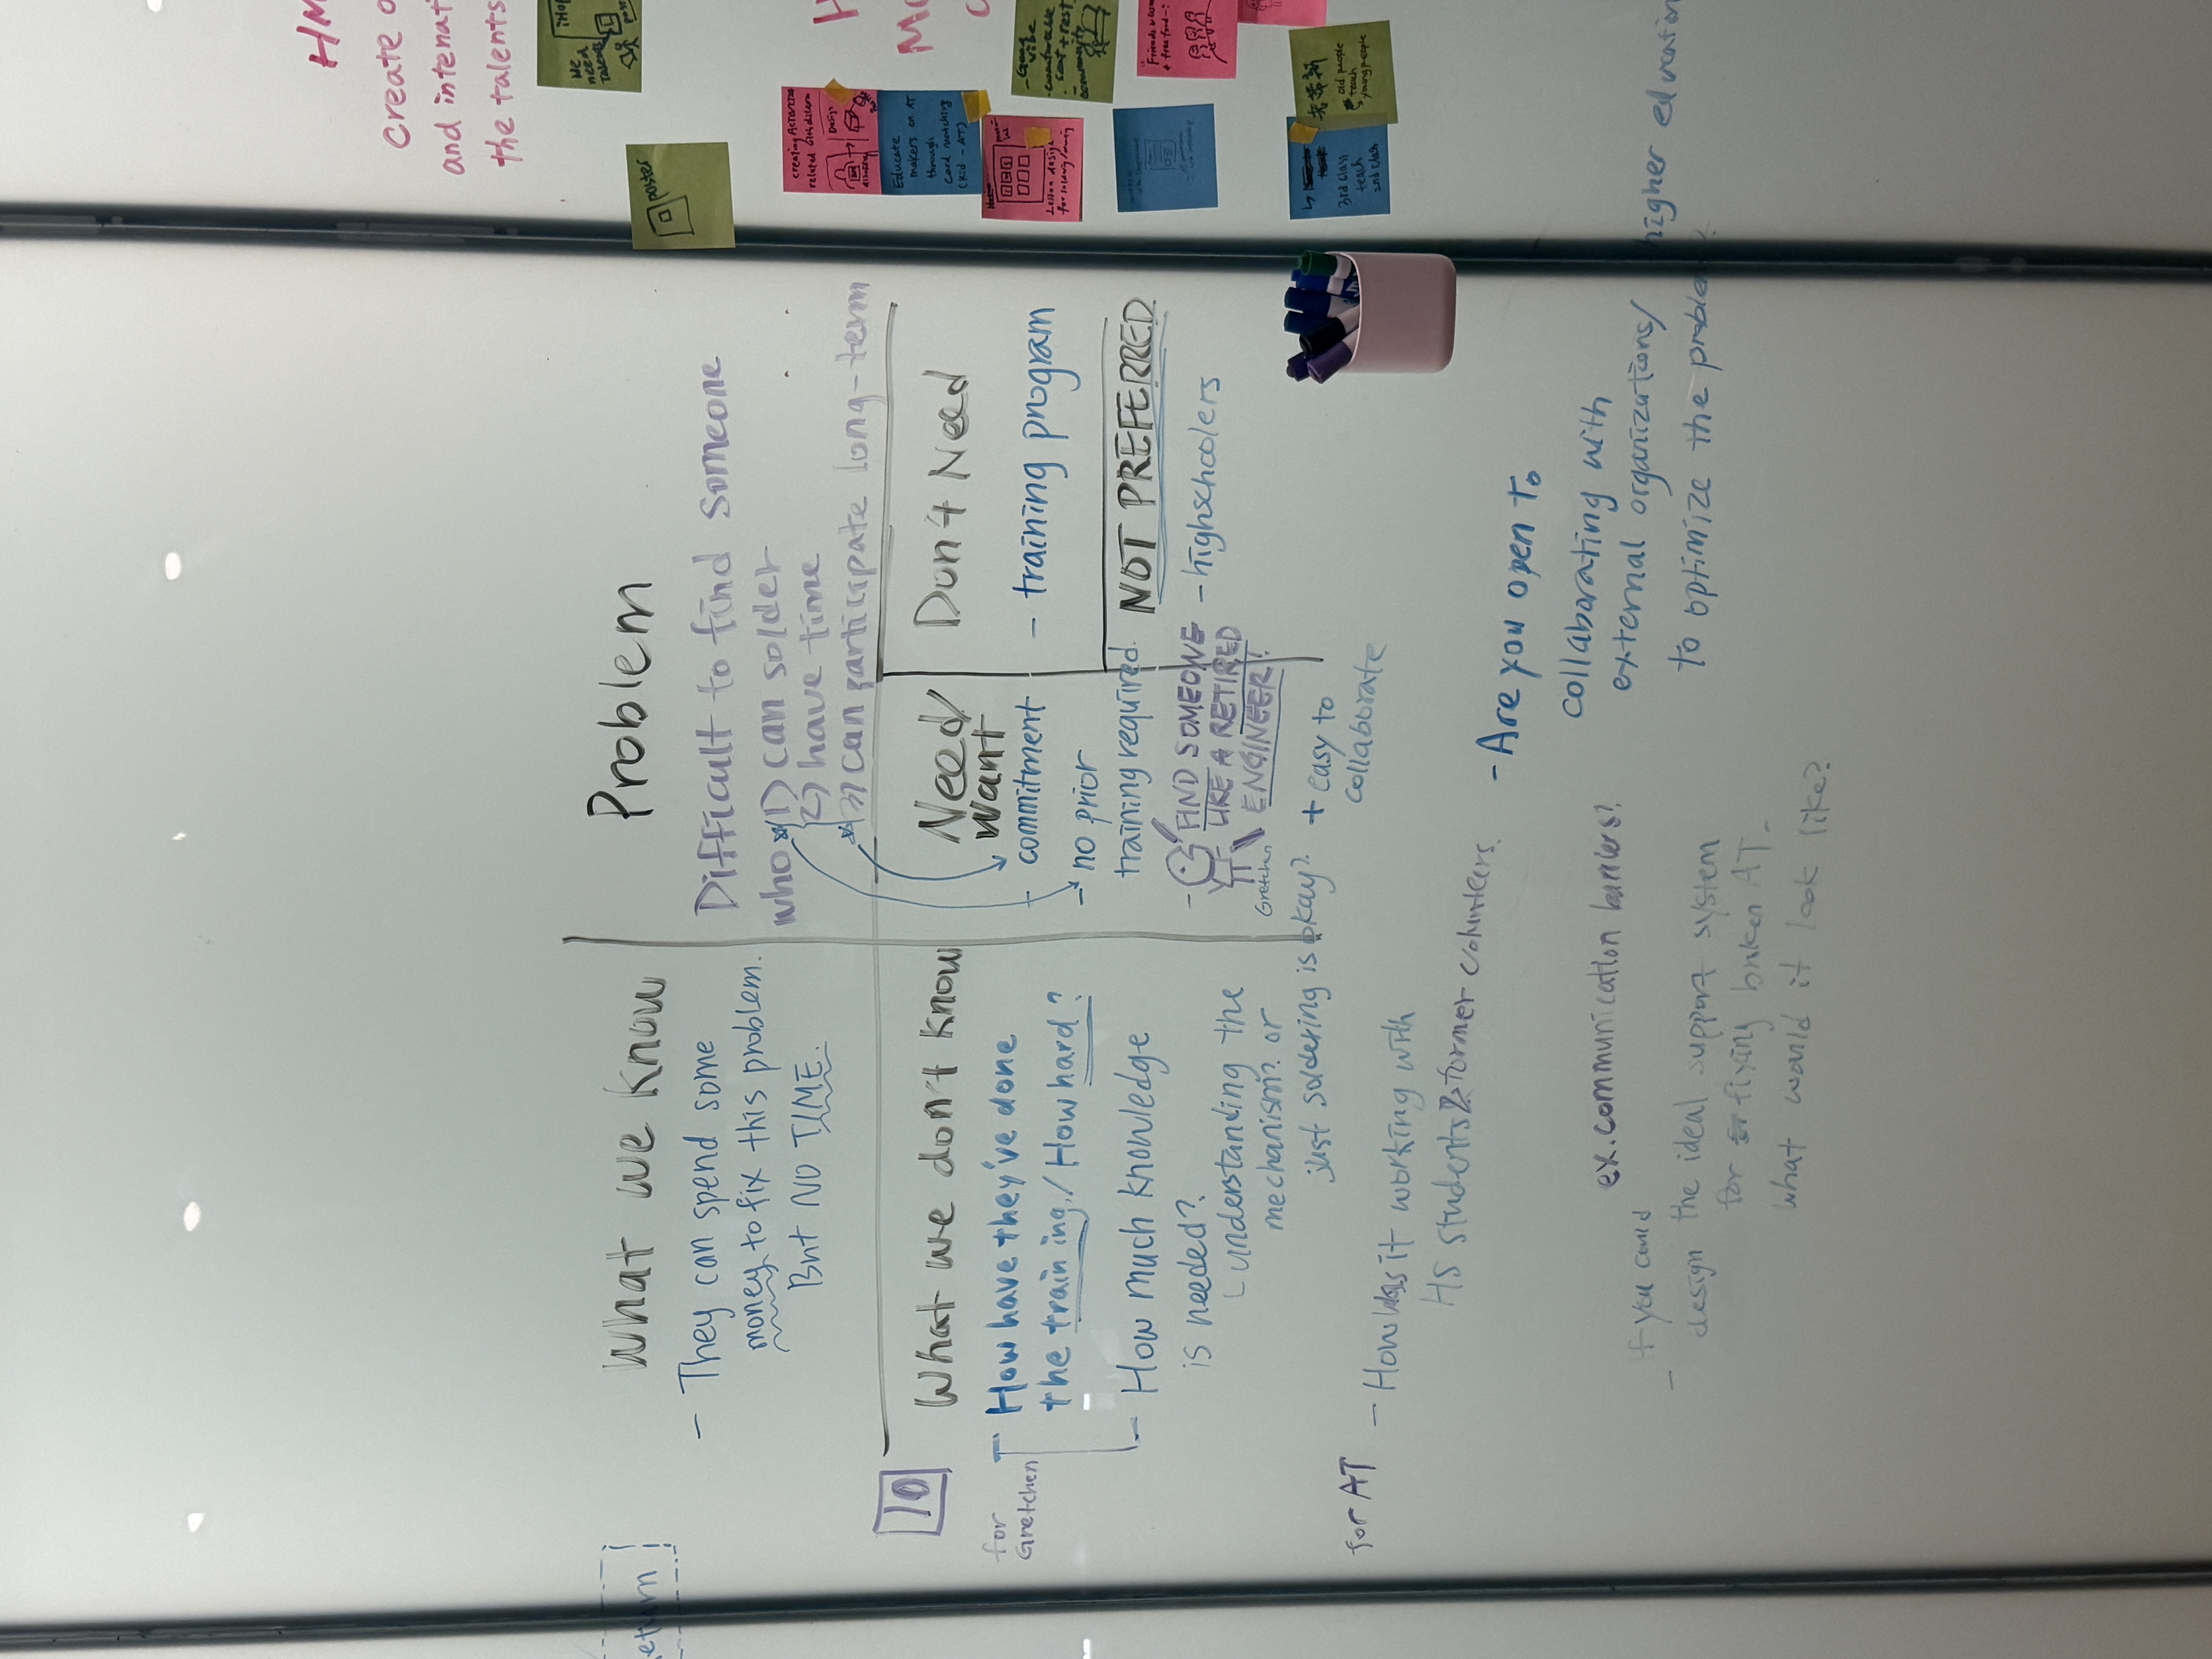 What we know
- They can spend some
money to fix this problem.
But NO TIME.
Problem
Difficult to find someone
who 1) can solder
2) have time
3) can participate long-term
10
What we don't know
for
Gretchen
- How have they've done
the training/How hard?
- How much knowledge
is needed?
understanding the
mechanism? or
just soldering is okay?
Need/
Want
- commitment
- no prior
training required.
- FIND SOMEONE
LIKE A RETIRED
ENGINEER!
Gretchen
+ easy to
collaborate
Don't Need
- training program
NOT PREFERRED
- highschoolers
for AT
- How was it working with
HS students & former volunteers
ex. communication barriers?
- If you could
design the ideal support system
for fixing broken AT,
what would it look like?
- Are you open to
collaborating with
external organizations/higher education
to optimize the problem?
Create
the talents
poster
We
need
talents
creating
related
Design
Educate
makers on AT
through
card matching
(kid - AT)
Lesson design
- Good
vibe
- comfortable
seat + rest
- community
Friends
+ free food
old people
teach
young people
3rd class
teach
2nd class